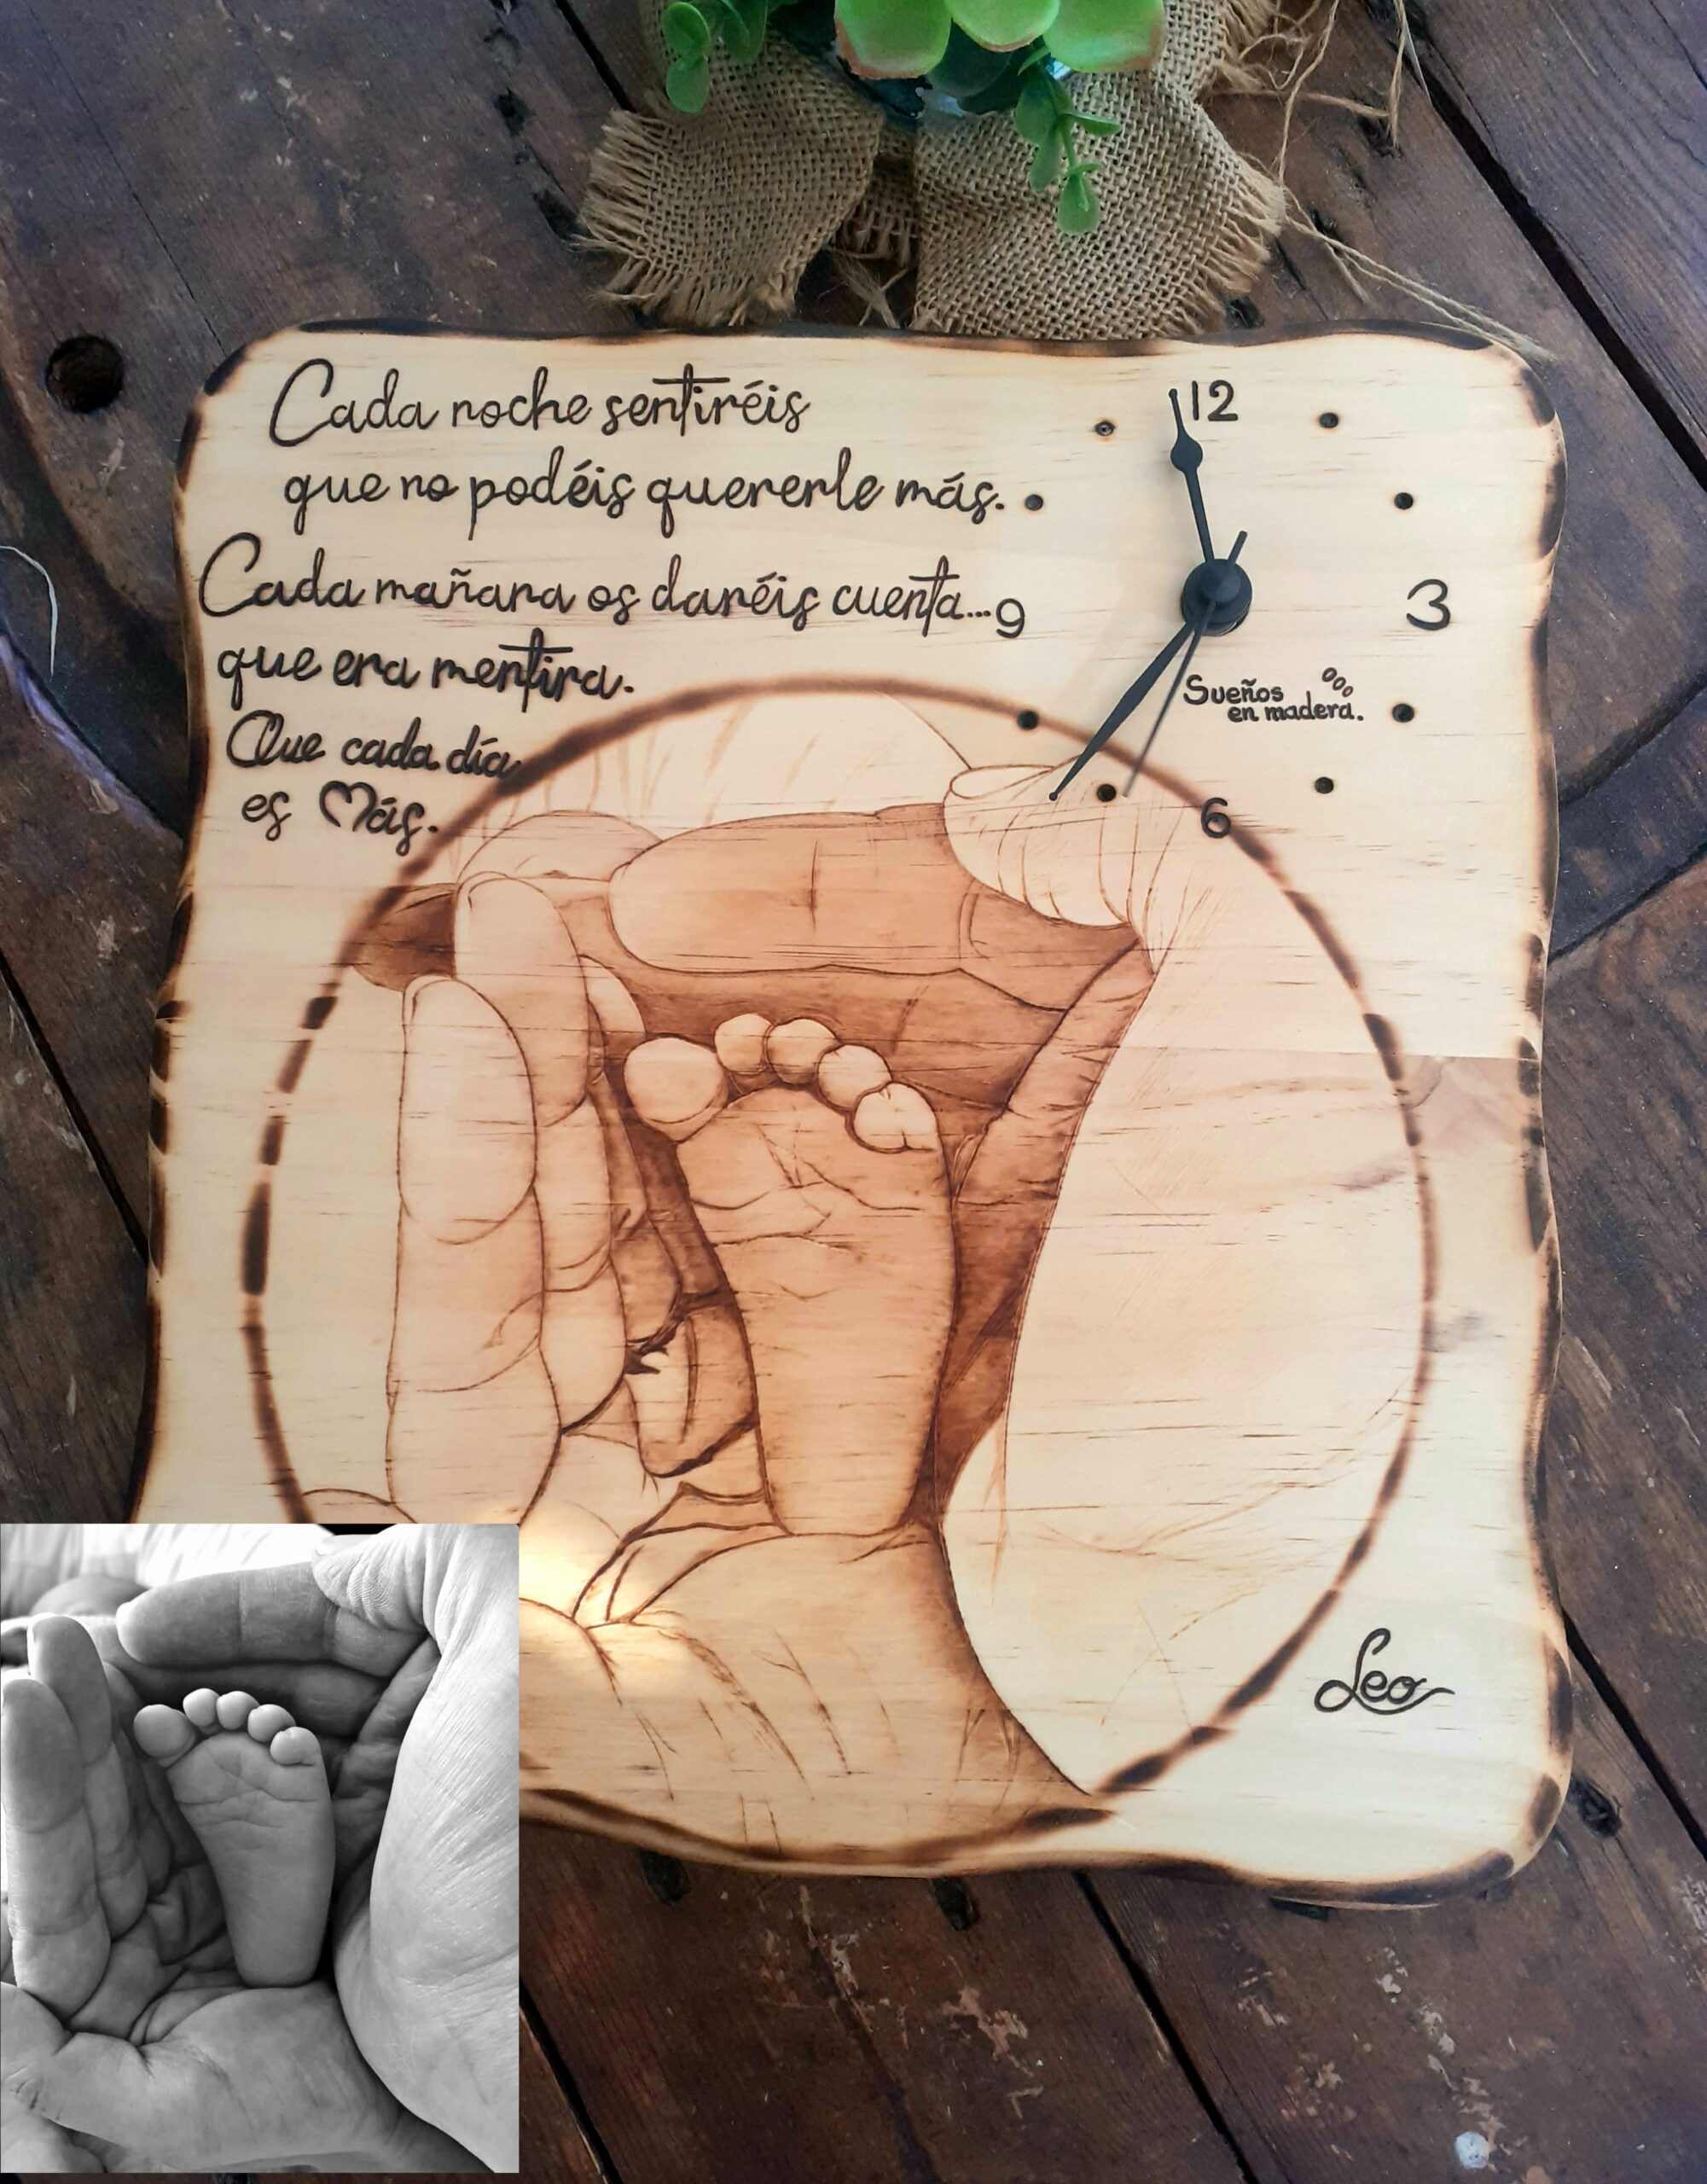 Cada noche sentiréis
que no podéis quererle más.
Cada mañana os daréis cuenta...
que era mentira.
Que cada día
es Más.
12
9
3
6
Sueños
en madera.
Leo